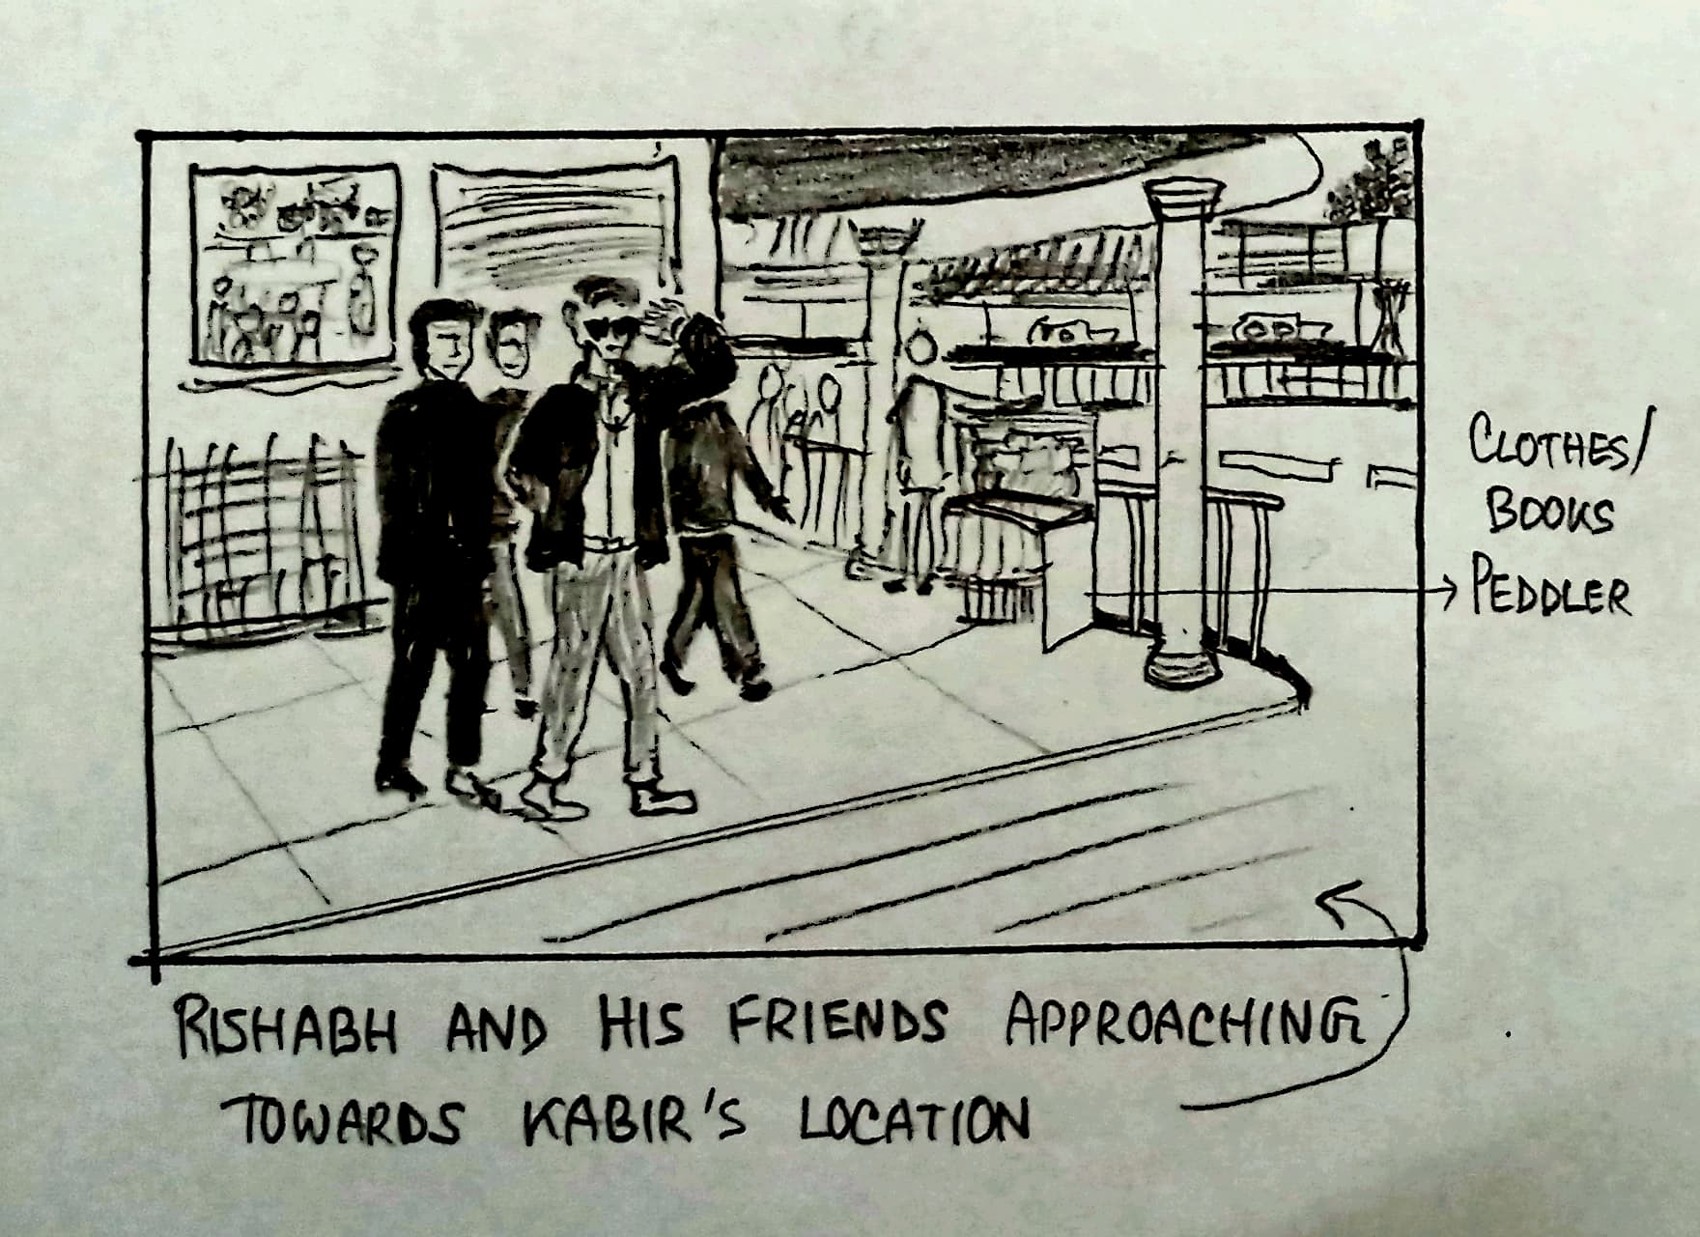 CLOTHES/
BOOKS
PEDDLER
RISHABH AND HIS FRIENDS APPROACHING
TOWARDS KABIR'S LOCATION